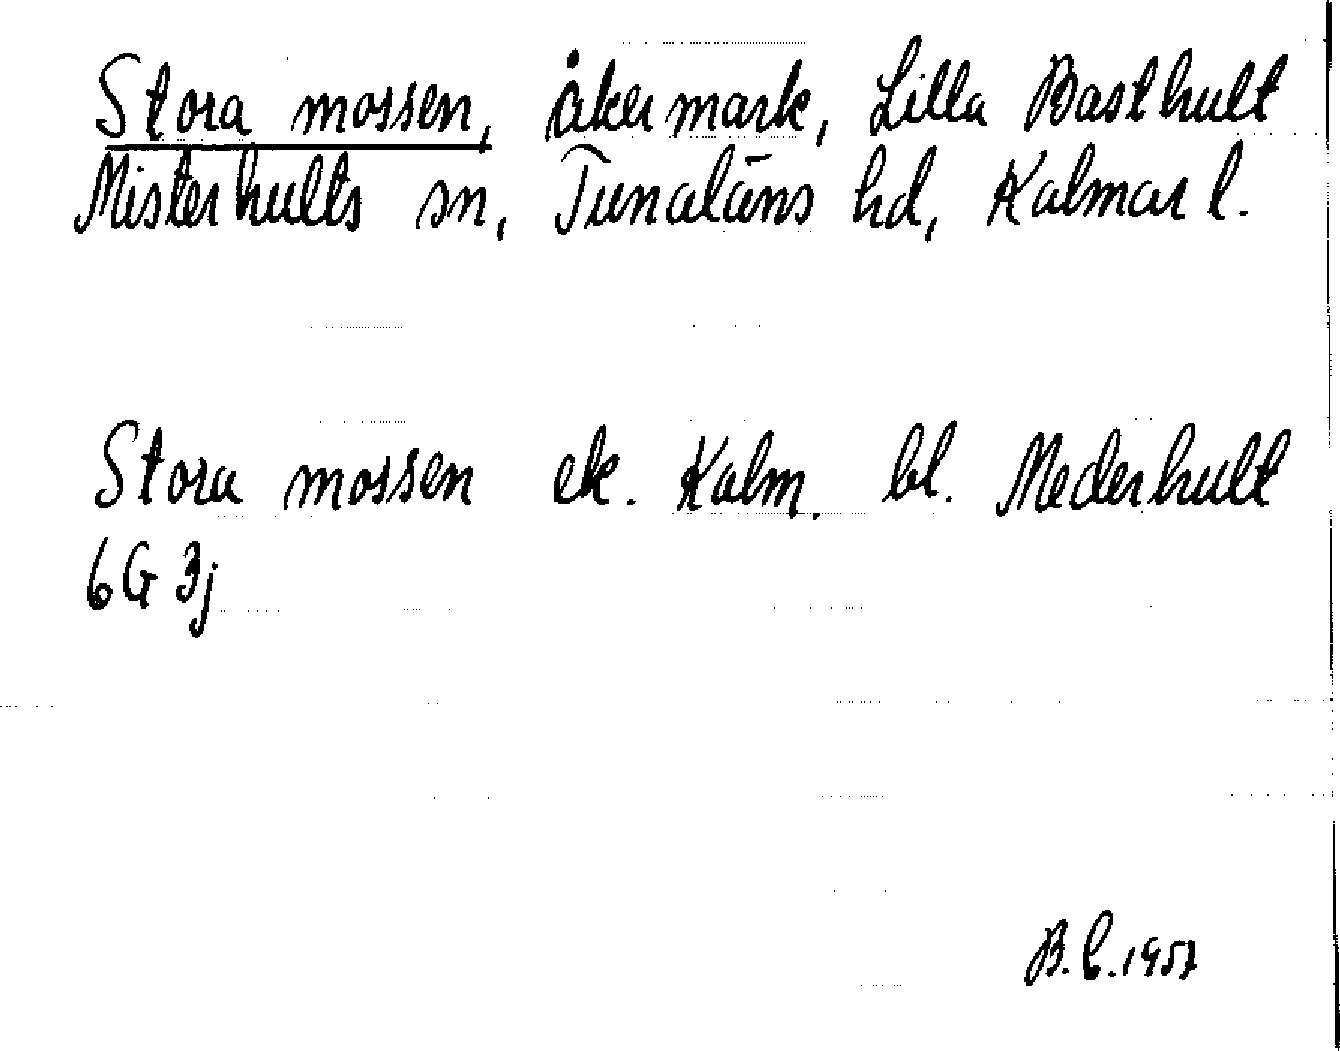 Stora mossen, åkermark, Lilla Basthult
Misterhults sn, Tunaläns hd, Kalmar l.
Stora mossen ek. Kalm. bl. Mederhult
6G 3j
B.C.1957